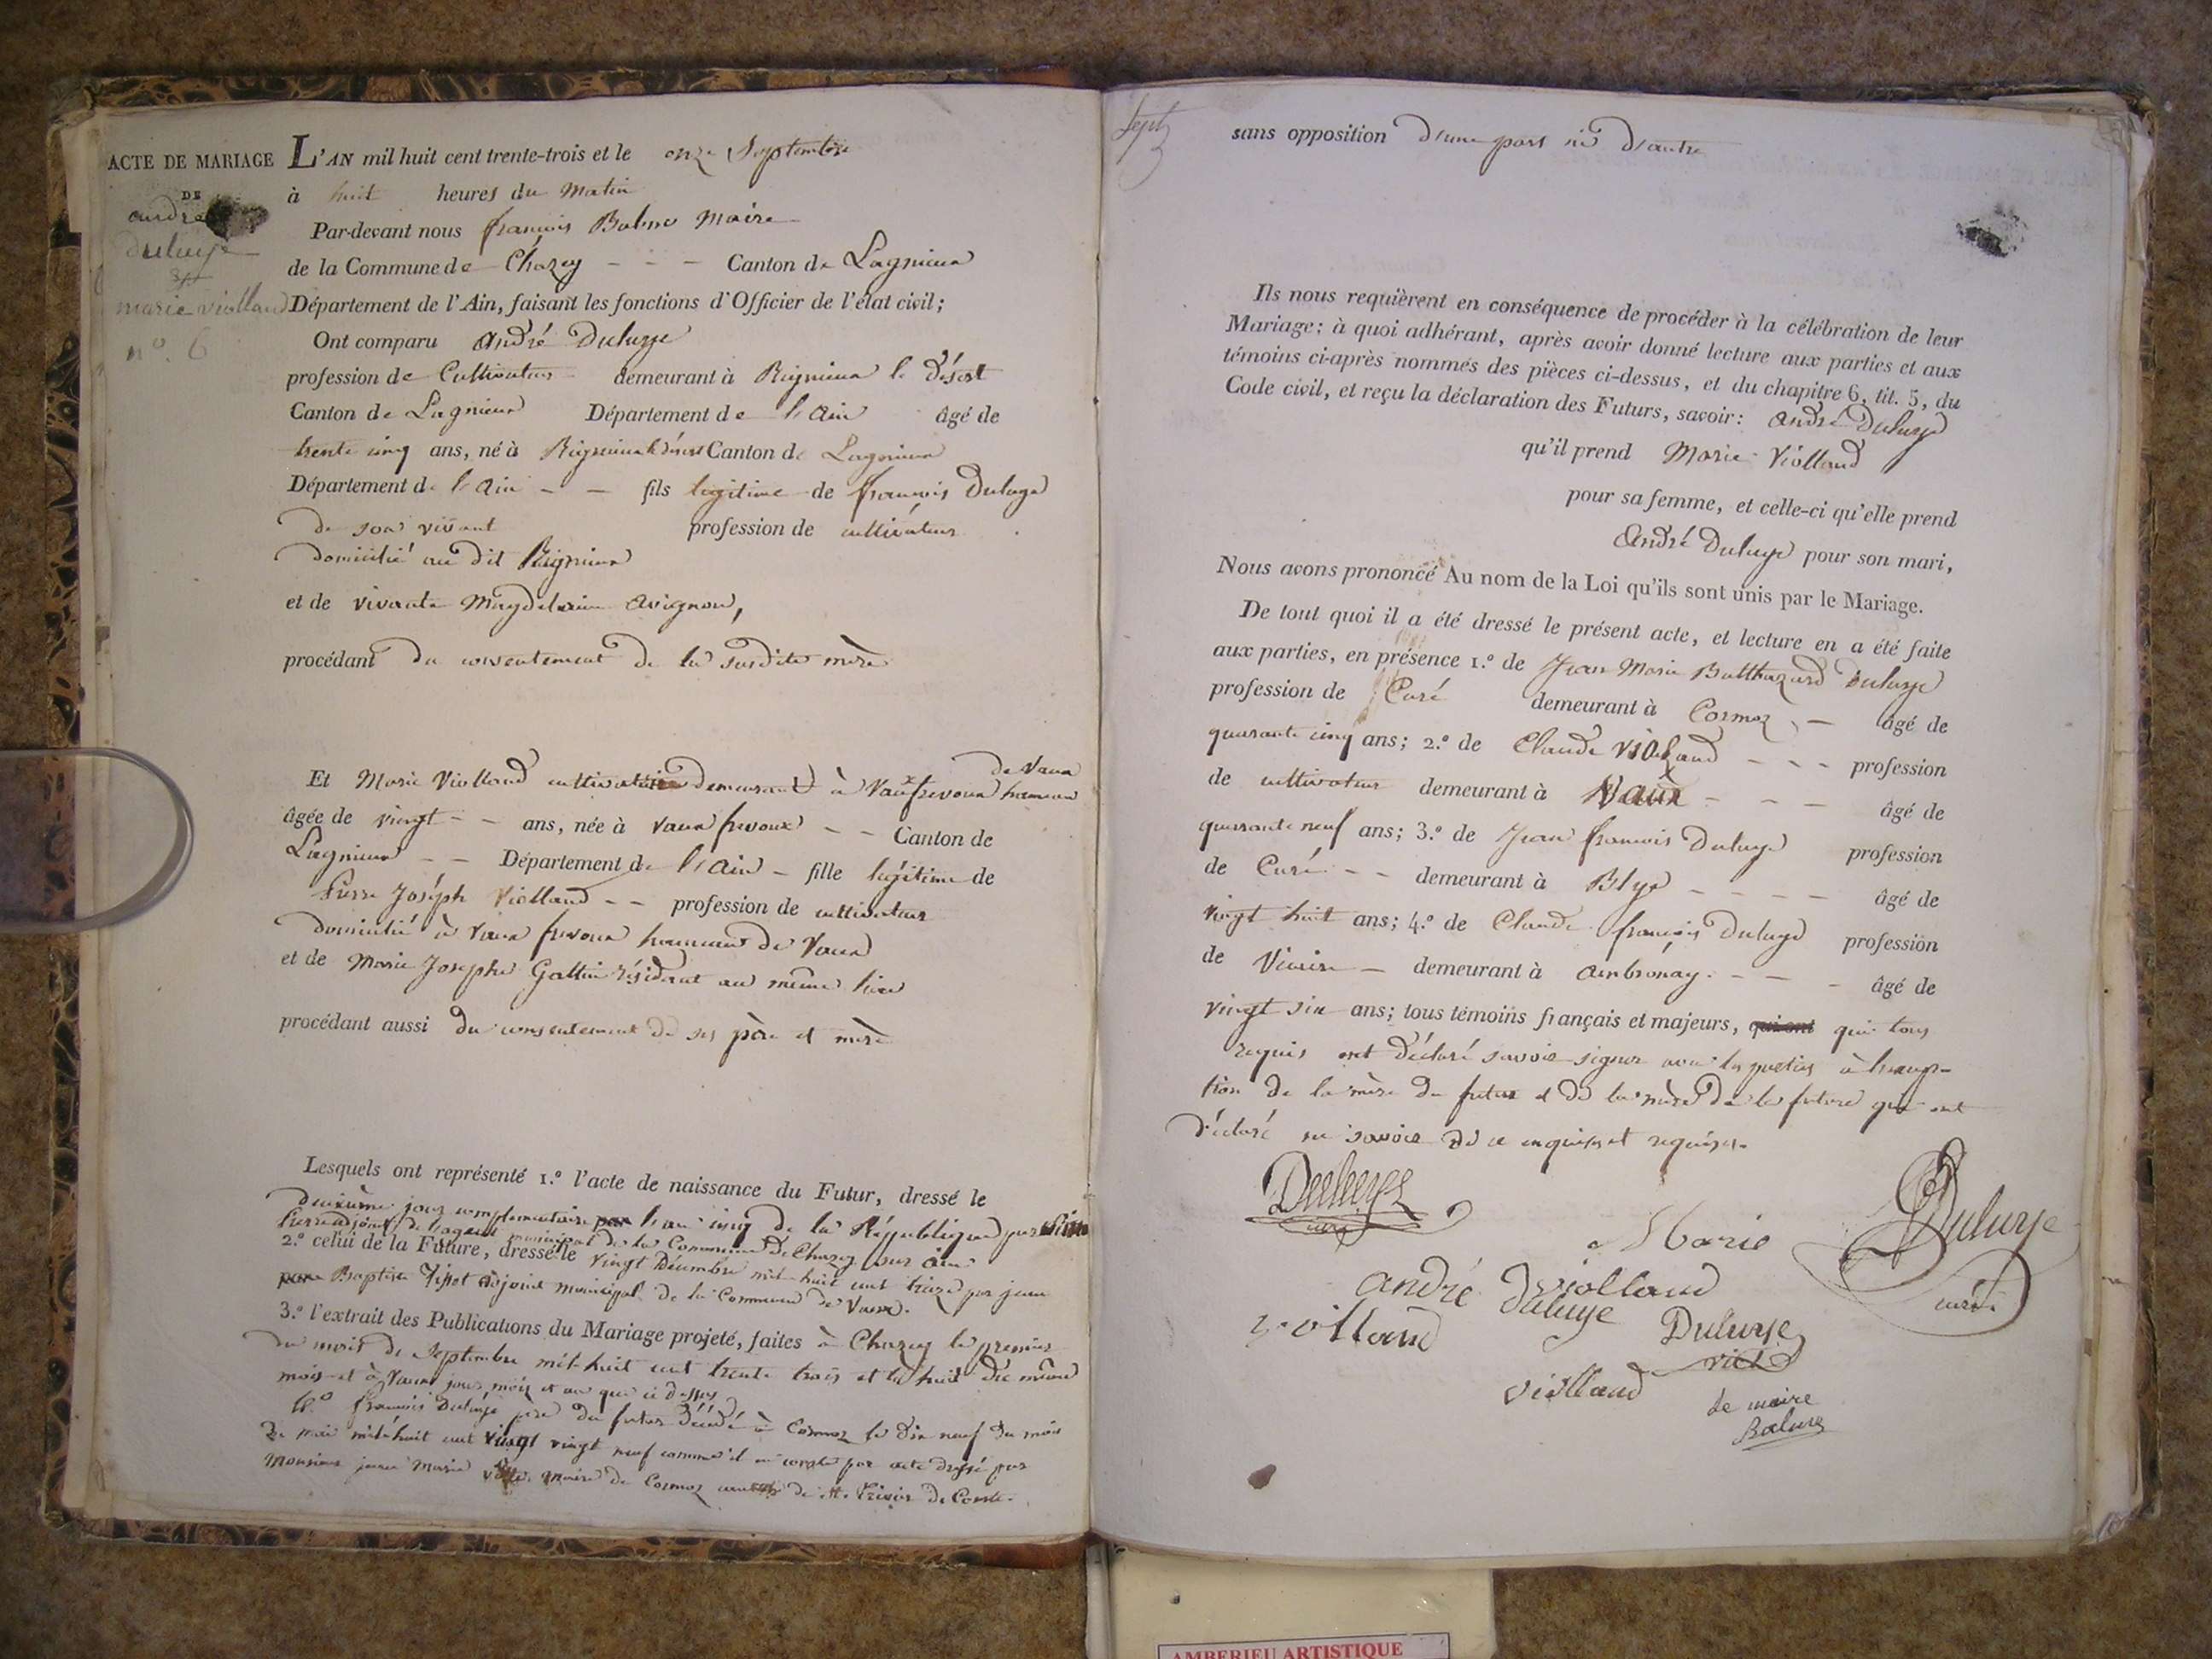 ACTE DE MARIAGE
DE
andré
duluye
et
marie violland
nº. 6
L'AN mil huit cent trente-trois et le onze Septembre
à huit heures du Matin
Par-devant nous françois Balme Maire
de la Commune de Chazey - - - Canton de Lagnieux
Département de l'Ain, faisant les fonctions d'Officier de l'état civil;
Ont comparu André Duluye
profession de Cultivateur demeurant à Rignieux le désert
Canton de Lagnieux Département de l'Ain âgé de
trente cinq ans, né à Rignieux le désert Canton de Lagnieux
Département de l'Ain - - fils légitime de françois Duluye
de son vivant profession de cultivateur
domicilié au dit Rignieux
et de vivante Magdelaine Avignon,
procédant du consentement de la susdite mère
Et Marie Violland cultivatrice demeurant à Vaux fevroux hameau de Vaux
âgée de vingt - - ans, née à Vaux fevroux - - Canton de
Lagnieux - - Département de l'Ain - fille légitime de
Pierre Joséph Violland - - profession de cultivateur
domicilié à Vaux fevroux hameau de Vaux
et de Marie Josephe Gallin résidant au même lieu
procédant aussi du consentement de ses père et mère
Lesquels ont représenté 1.º l'acte de naissance du Futur, dressé le
deuxième jour complémentaire l'an cinq de la République par
Pierre adjoint de l'agent municipal de la Commune de Chazey sur ain
2.º celui de la Future, dressé le vingt Décembre mil huit cent treize par jean
Baptiste Tissot adjoint municipal de la Commune de Vaux.
3.º l'extrait des Publications du Mariage projeté, faites à Chazey le premier
du mois de Septembre mil huit cent trente trois et le huit du même
mois et à Vaux jours, mois et an que ci dessus
4.º françois Duluye père du futur décédé à Cormoz le dix neuf du mois
de mai mil huit cent vingt neuf comme il en conste par acte dressé par
Monsieur jean Marie maire de Cormoz de St. Trivier de Courte.
Sept
sans opposition d'une part ni d'autre
Ils nous requièrent en conséquence de procéder à la célébration de leur
Mariage; à quoi adhérant, après avoir donné lecture aux parties et aux
témoins ci-après nommés des pièces ci-dessus, et du chapitre 6, tit. 5, du
Code civil, et reçu la déclaration des Futurs, savoir: André Duluye
qu'il prend Marie Violland
pour sa femme, et celle-ci qu'elle prend
André Duluye pour son mari,
Nous avons prononcé Au nom de la Loi qu'ils sont unis par le Mariage.
De tout quoi il a été dressé le présent acte, et lecture en a été faite
aux parties, en présence 1.º de Jean Marie Balthazard Duluye
profession de Curé demeurant à Cormoz - âgé de
quarante cinq ans; 2.º de Claude Violland - - - profession
de cultivateur demeurant à Vaux - - - âgé de
quarante neuf ans; 3.º de Jean françois Duluye profession
de Curé - - demeurant à Blye - - - - âgé de
vingt huit ans; 4.º de Claude françois Duluye profession
de Vicaire - demeurant à Ambronay - - - âgé de
vingt six ans; tous témoins français et majeurs, qui ont qui tous
requis ont déclaré savoir signer avec les parties à l'exeption
de la mère du futur et de la mère de la future qui ont
déclaré ne savoir de ce enquises et requises.
Duluye
curé
Marie
violland
Duluye
curé
andré duluye
violland
Duluye
vic
violland
le maire
Balme
AMBERIEU ARTISTIQUE